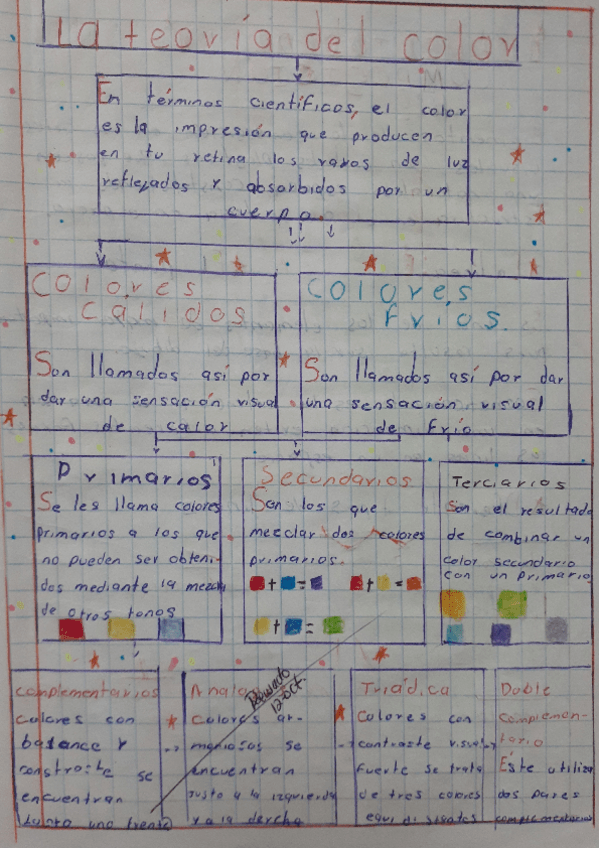 La teoría del color
En términos científicos, el color
es la impresión que producen
en tu retina los rayos de luz
reflejados y absorbidos por un
cuerpo.
Colores
Cálidos
Son llamados así por
dar una sensación visual
de calor
Colores
Fríos.
Son llamados así por dar
una sensación visual
de Frío
Primarios
Se les llama colores
primarios a los que
no pueden ser obteni-
dos mediante la mezcla
de otros tonos
Secundarios
Son los que
mezclar dos colores
primarios.
+ =
+ =
+ =
Terciarios
Son el resultado
de combinar un
color secundario
con un primario
Complementarios
Colores con
balance y
constraste se
encuentran
Colores ar-
moniosos se
encuentran
justo a la izquierda
y a la dercha
12-oct.
Triádica
Colores con
contraste visual y
fuerte se trata
de tres colores
equidistates
Doble
complemen-
tario
Éste utiliza
dos pares
complementarios